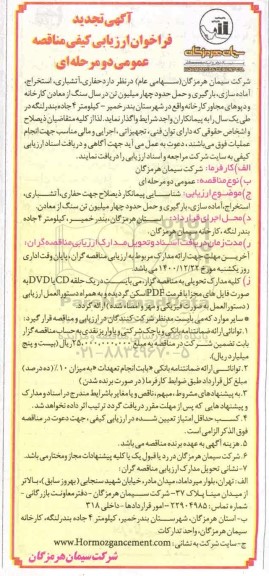 آگهی تجدید
فراخوان ارزیابی کیفی مناقصه
عمومی دو مرحله ای
شرکت سیمان هرمزگان (سهامی عام) در نظر دارد حفاری، آتشباری، استخراج،
آماده سازی، بارگیری و حمل حدود چهار میلیون تن در سال سنگ از معادن کارخانه
و دپوهای مجاور کارخانه واقع در شهرستان بندر خمیر - کیلومتر ۴ جاده بندرلنگه در
طی یک سال را به پیمانکاران واجد شرایط واگذار نماید. لذا از کلیه متقاضیان ذیصلاح
و اشخاص حقوقی که دارای توان فنی، تجهیزاتی، اجرایی و مالی مناسب جهت انجام
عملیات فوق می باشند، دعوت به عمل می آید جهت آگاهی و دریافت اسناد ارزیابی
کیفی به سایت شرکت مراجعه و اسناد ارزیابی را دریافت نمایند.
الف) کارفرما: شرکت سیمان هرمزگان
ب) نوع مناقصه: عمومی دو مرحله ای
ج) موضوع ارزیابی: شناسایی پیمانکار ذیصلاح جهت حفاری، آتشباری،
استخراج، آماده سازی، بارگیری و حمل حدود چهار میلیون تن سنگ از معادن.
د) محل اجرای قرارداد: استان هرمزگان، بندر خمیر، کیلومتر ۴ جاده
بندر لنگه، کارخانه سیمان هرمزگان
ر) مدت زمان دریافت اسناد و تحویل مدارک ارزیابی مناقصه گران:
آخرین مهلت جهت ارائه مدارک مربوط به ارزیابی مناقصه گران، پایان وقت اداری
روز یکشنبه مورخ ۱۴۰۰/۱۲/۲۲ می باشد.
ز) کلیه مدارک تحویلی به مناقصه گزار، می بایست در یک حلقه CD یا DVD به
صورت فایل های مجزا با فرمت PDF اسکن گردیده و به همراه دستورالعمل ارزیابی
* سایر مواردی که می بایست مدنظر شرکت کنندگان در ارزیابی و مناقصه قرار گیرد:
۱. توانائی ارائه ضمانتنامه بانکی یا چک شرکتی و یا واریز نقدی به حساب مناقصه گزار
بابت تضمین شرکت در مناقصه به مبلغ ۲۵.۰۰۰.۰۰۰.۰۰۰ ریال (بیست و پنج
میلیارد ریال).
۲. توانائی ارائه ضمانتنامه بانکی «بابت انجام تعهدات» به میزان ۱۰٪ (ده درصد)
مبلغ کل قرارداد طبق ضوابط کارفرما (در صورت برنده شدن)
۳. به پیشنهادهای مشروط، مبهم، ناقص و یا مغایر با شرایط مندرج در اسناد و مدارک
و پیشنهاد هایی که پس از مهلت مقرر دریافت گردد ترتیب اثر داده نخواهد شد.
۴. کسب حداقل امتیاز تعیین شده در ارزیابی کیفی، جهت دعوت در مناقصه
فوق الذکر الزامی است.
۵. هزینه آگهی به عهده برنده مناقصه می باشد.
۶. شرکت سیمان هرمزگان در رد یا قبول یک یا کلیه پیشنهادات مجاز و مختار می باشد.
۷- نشانی تحویل مدارک ارزیابی مناقصه گران:
الف- تهران، بلوار میرداماد، میدان مادر، خیابان شهید سنجابی (بهروز سابق)، بالاتر
از میدان مینا پلاک ۳۷- شرکت سیمان هرمزگان - دفتر معاونت بازرگانی -
شماره تماس: ۲۲۹۰۴۹۸۵ - امور قراردادها - داخلی ۳۱۸
ب- استان هرمزگان، شهرستان بندر خمیر، کیلومتر ۴ جاده بندر لنگه، کارخانه
سیمان هرمزگان، واحد تدارکات
ج- سایت شرکت به نشانی: www.Hormozgancement.com
شرکت سیمان هرمزگان